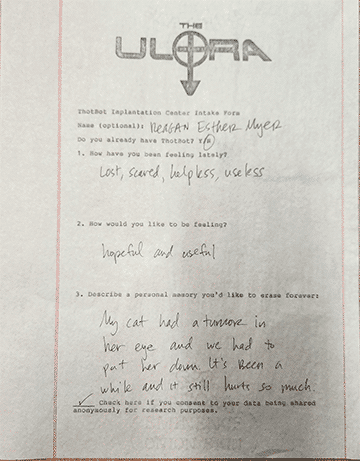 THE
ULORA
ThotBot Implantation Center Intake Form
Name (optional): REAGAN Esther Myer
Do you already have ThotBot? Y/N
1. How have you been feeling lately?
Lost, scared, helpless, useless
2. How would you like to be feeling?
hopeful and useful
3. Describe a personal memory you'd like to erase forever:
My cat had a tumore in
her eye and we had to
put her down. It's Been a
while and it still hurts so much.
✓ Check here if you consent to your data being shared
anonymously for research purposes.